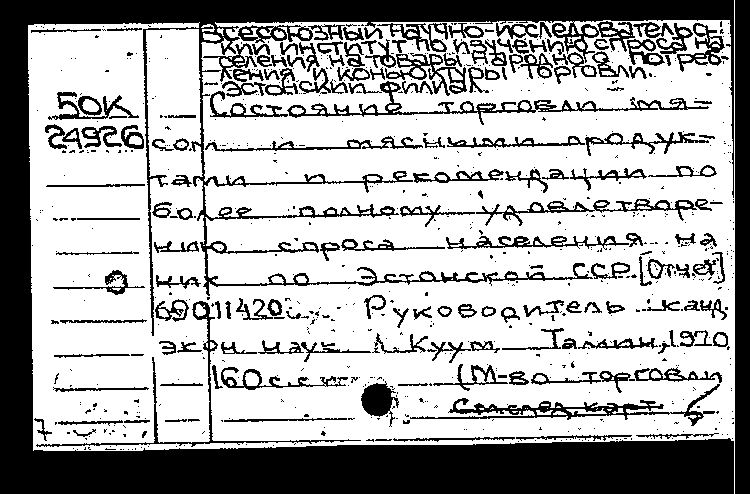 Всесоюзный научно-исследовательс-
кий институт по изучению спроса на-
селения на товары народного потреб-
ления и конъюктуры торговли.
Эстонский филиал.
50К
24926
Состояние торговли мя-
сом и мясными продук-
тами и рекомендации по
более полному удовлетворе-
нию спроса населения на
них по Эстонской ССР. [Отчет]
69011420 Руководитель канд.
экон. наук Л. Куум. Таллин, 1970
160 с. с илл. (М-во торговли
См. след. карт.